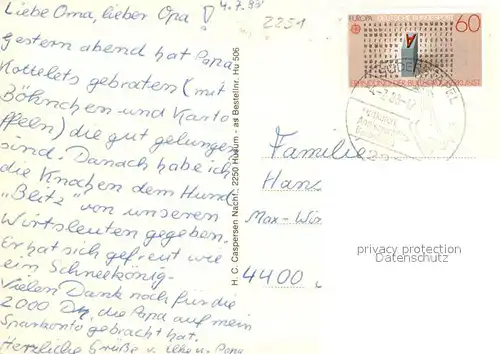 Liebe Oma, lieber Opa!
4.7.83
2251
Gestern abend hat Papa
Kottelets gebraten (mit
Böhnchen und Karto
ffeln) die gut gelungen
sind. Danach habe ich
die Knochen dem Hund
„Blitz" von unseren
Wirtsleuten gegeben.
Er hat sich gefreut wie
ein Schneekönig.
Vielen Dank noch für die
2000 DM, die Papa auf mein
Sparkonto gebracht hat.
Herzliche Grüße v.
H. C. Caspersen Nachf., 2250 Husum - as Bestellnr. Hu 506
EUROPA DEUTSCHE BUNDESPOST
60
ERFINDUNG DER BUCHDRUCKERKUNST
Familie
Hans
Max-Win
4400
privacy protection
Datenschutz